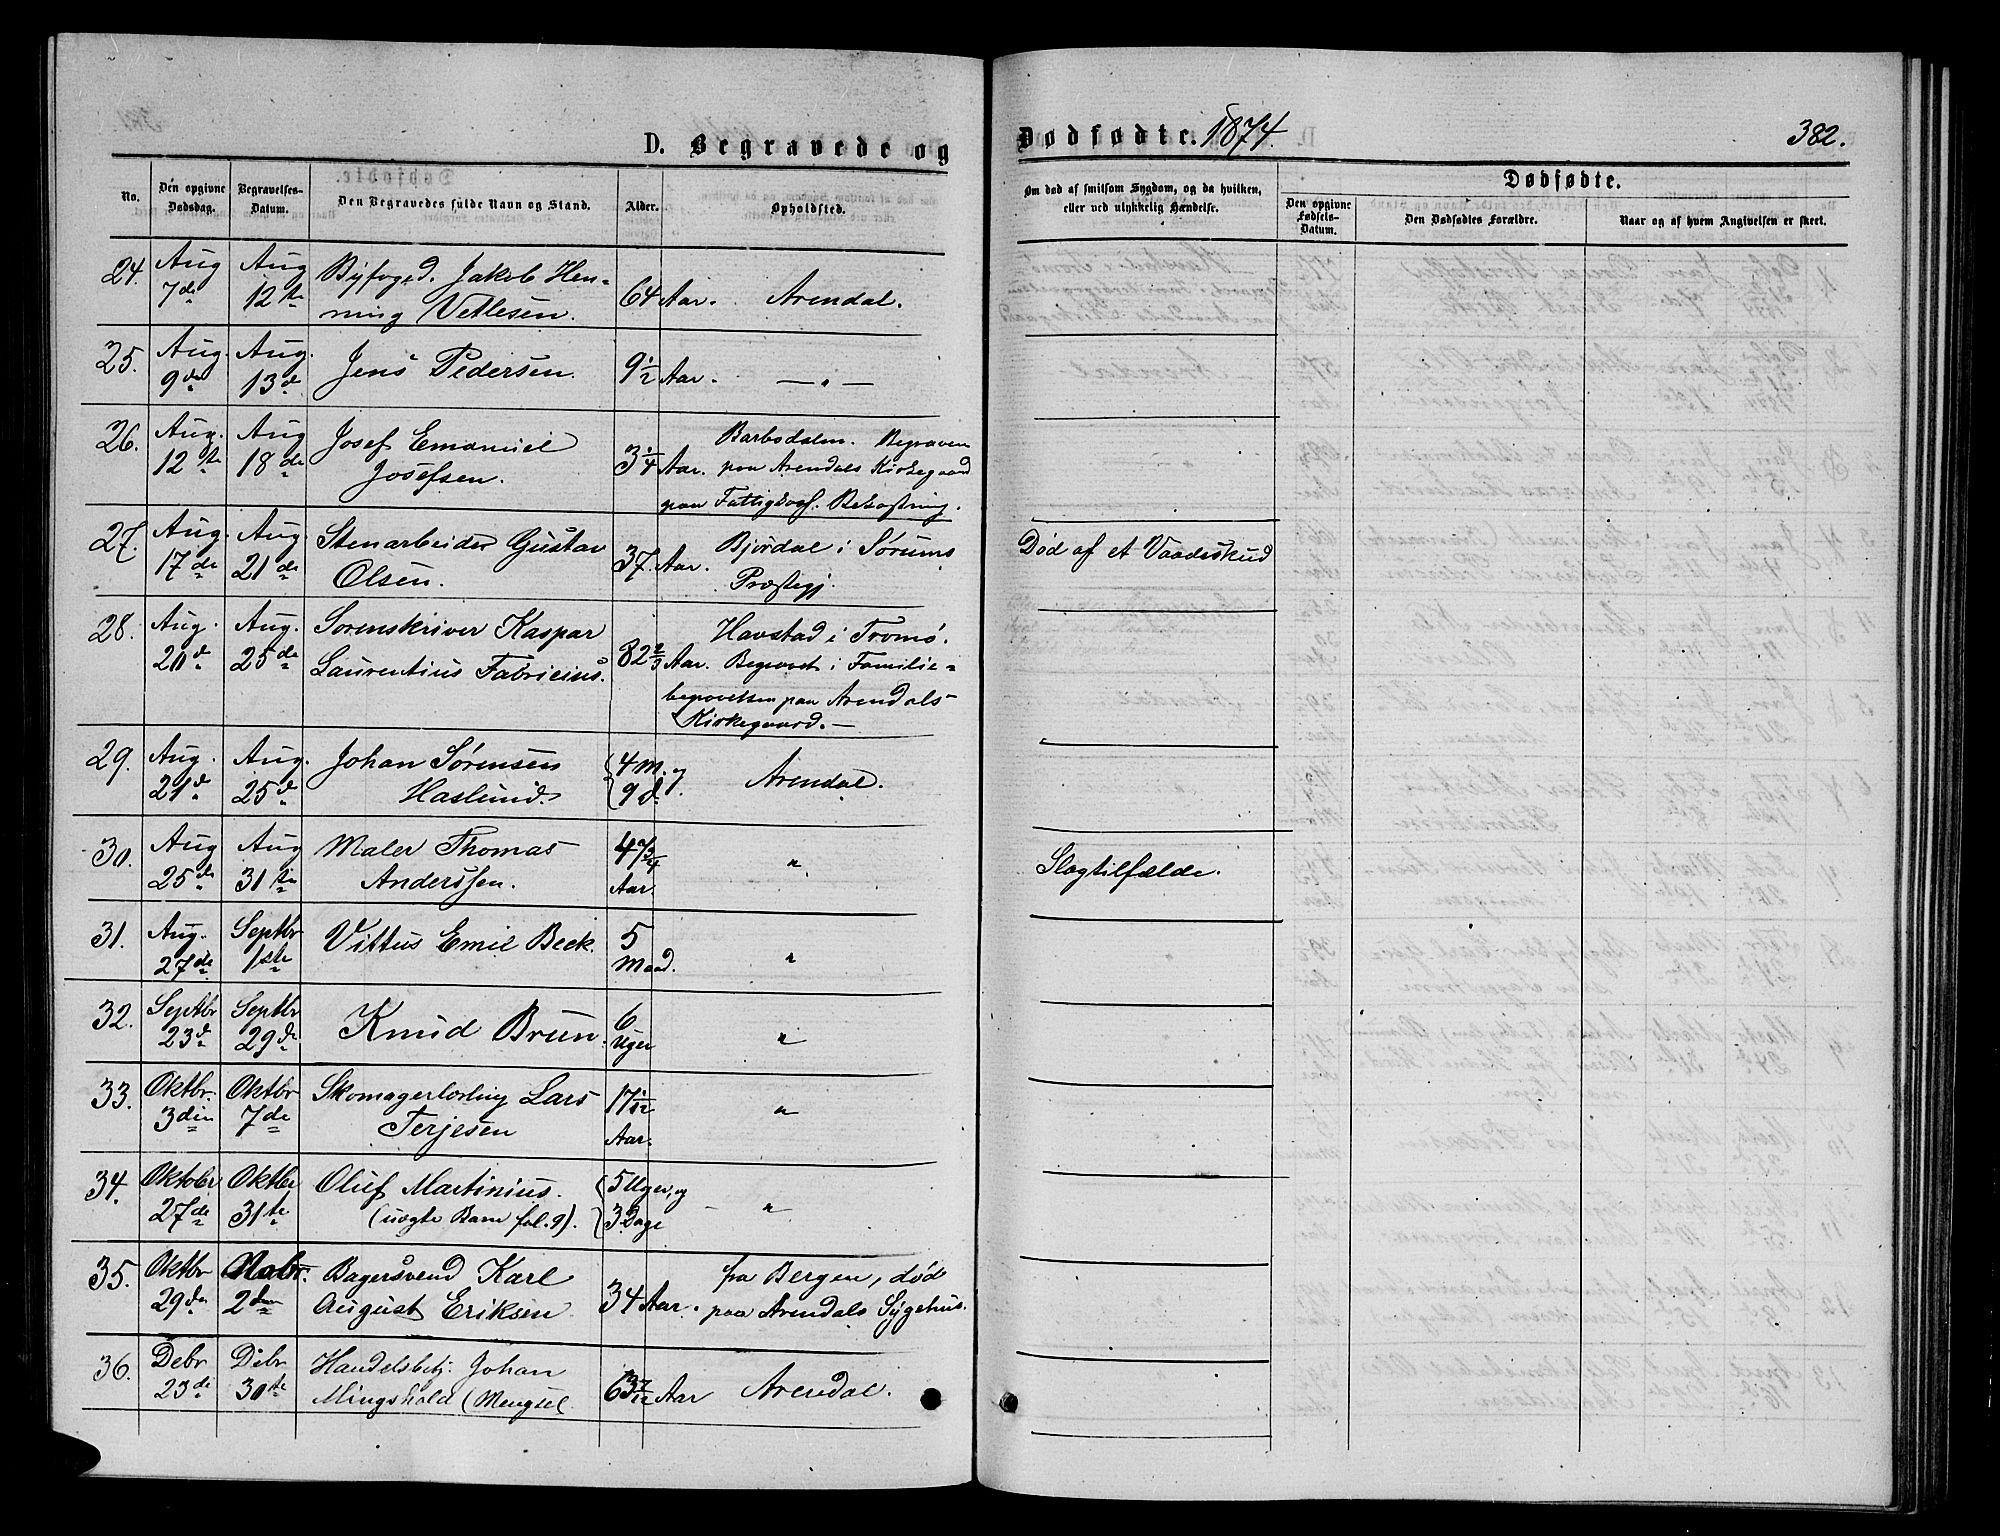 D. Begravede og
Dødfødte. 1874.
382.
No.
Den opgivne Dødsdag.
Begravelses-Datum.
Den Begravedes fulde Navn og Stand.
Alder.
Opholdsted.
Om død af smitsom Sygdom, og da hvilken, eller ved ulykkelig Hændelse.
Dødfødte.
Den opgivne Fødsels-Datum.
Den Dødfødtes Forældre.
Naar og af hvem Angivelsen er skeet.
24. Aug 7de Aug 12te Byfoged. Jakob Hen-
ning Vetlesen. 64 Aar. Arendal.
25. Aug. 9de Aug. 13de Jens Pedersen. 9 1/2 Aar. — „ —
26. Aug. 12te Aug 18de Josef Emanuel
Josefsen. 3 1/4 Aar. Barbodalen. Begraven
paa Arendals Kirkegaard
paa Fattigkass. Bekostning.
27. Aug. 17de Aug 21de Stenarbeider Gustav
Olsen. 37. Aar. Bjordal i Sørums
Præstegj. Død af et Vaadeskud
28. Aug. 20de Aug. 25de Sorenskriver Kaspar
Laurentius Fabricius. 82 2/3 Aar. Havstad i Tromø.
Begravet i Familie-
begravelsen paa Arendals
Kirkegaard. —
29. Aug. 21de Aug. 25de Johan Sørensen
Haslund. 4 M. og
9 d. Arendal.
30. Aug 25de Aug 31te Maler Thomas
Anderssen. 47 3/4
Aar. „ Slagtilfælde.
31. Aug. 27de Septbr 1ste Vittus Emil Beck. 5
Maad. „
32. Septbr 23de Septbr 29de Knud Brun. 6
Uger „
33. Oktbr. 3die Oktbr 7de Skomagerlærling Lars
Terjesen 17 1/12
Aar. „
34. Oktobr 27de Oktbr 31te Oluf Martinius.
(uægte Barn fol. 9). 5 Uger, og
3 Dage „
35. Oktbr 29de Nobr. 2den Bagersvend Karl
August Eriksen 34 Aar. fra Bergen, død
paa Arendals Sygehus.
36. Debr 23de Debr 30te Handelsbetj. Johan
Mingshold (Mengsel 63 7/12 Aar Arendal.